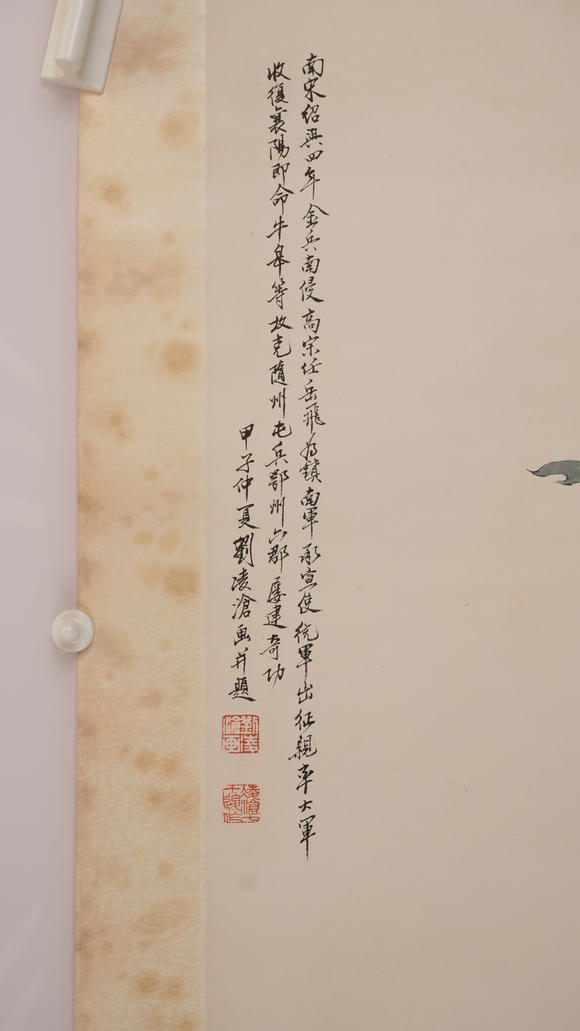 南宋紹興四年金兵南侵高宗任岳飛為鎮南軍承宣使統軍出征親率大軍
收復襄陽即命牛皋等攻克隨州屯兵鄂州六郡屢建奇功
甲子仲夏劉凌滄画并題